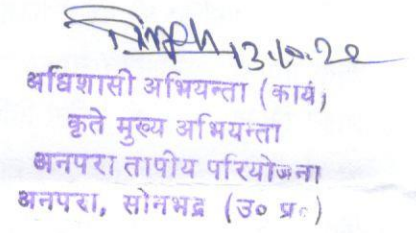 13.10.22
अधिशासी अभियन्ता (कार्य)
कृते मुख्य अभियन्ता
अनपरा तापीय परियोजना
अनपरा, सोनभद्र (उ० प्र०)